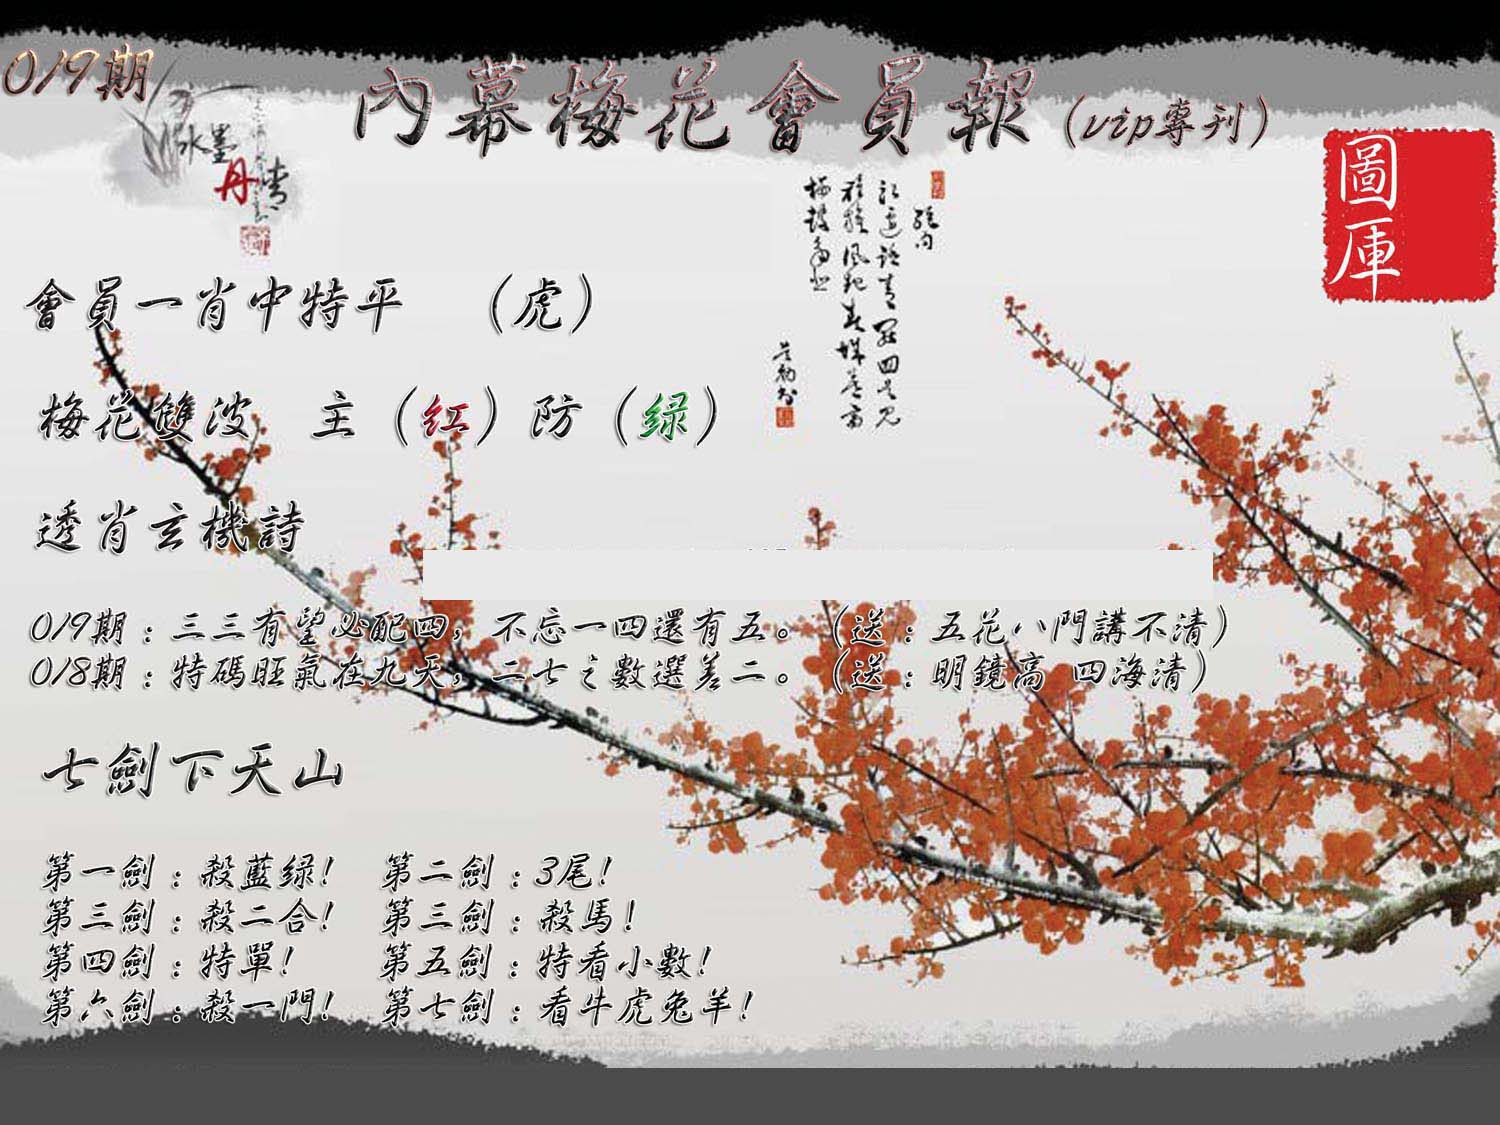 019期
內幕梅花會員報(vip專刊)
水墨
丹青
圖
庫
會員一肖中特平 (虎)
梅花雙波 主(红)防(绿)
透肖玄機詩
019期:三三有望必配四,不忘一四還有五。(送:五花八門講不清)
018期:特碼旺氣在九天,二七之數選差二。(送:明鏡高 四海清)
七劍下天山
第一劍:殺藍绿! 第二劍:3尾!
第三劍:殺二合! 第三劍:殺馬!
第四劍:特單! 第五劍:特看小數!
第六劍:殺一門! 第七劍:看牛虎兔羊!